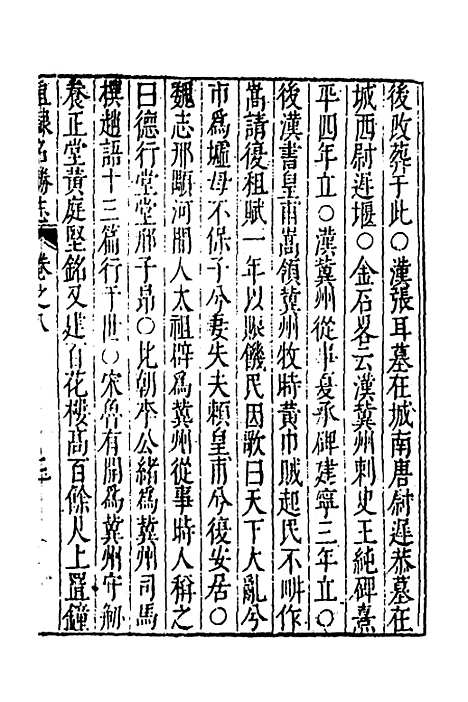 後改葬于此〇漢張耳墓在城南唐尉遲恭墓在
城西尉遲堰〇金石畧云漢冀州刺史王純碑熹
平四年立〇漢冀州從事夏承碑建寧三年立〇
後漢書皇甫嵩領冀州牧時黄巾賊起民不畊作
嵩請復租賦一年以賑饑民因歌曰天下大亂兮
市爲墟母不保子兮妻失夫頼皇甫兮復安居〇
魏志邢顒河間人太祖辟爲冀州從事時人稱之
曰德行堂堂邢子昂〇北朝李公緒爲冀州司馬
撰趙語十三篇行于世〇宋魯有開爲冀州守剏
養正堂黄庭堅銘又建百花樓髙百餘尺上置鐘
直隸名勝志 卷之八